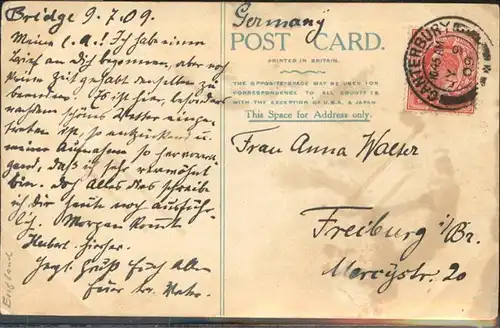 Bridge 9.7.09.
Meine l. A.! Ich habe einen
Brief an dich begonnen, aber noch
keine Zeit gehabt denselben zu
beenden. Es ist hier, besonders
nachdem schönes Wetter einge-
treten ist, so entzückend u.
meine Aufnahme so hervorra-
gend, daß ich sehr verwöhnt
bin. Doch alles dies schreibe
ich dir heute noch ausführ-
lich. Morgen kommt
Herbert hierher.
Herzl. Gruß Euch Allen
Euer tr. Vater.
England
Germany
POST CARD.
PRINTED IN BRITAIN.
THE OPPOSITE SPACE MAY BE USED FOR
CORRESPONDENCE TO ALL COUNTRIES
WITH THE EXCEPTION OF U.S.A. & JAPAN.
This Space for Address only.
CANTERBURY
JY 9
09
Frau Anna Walter
Freiburg i/Br.
Mercystr. 20